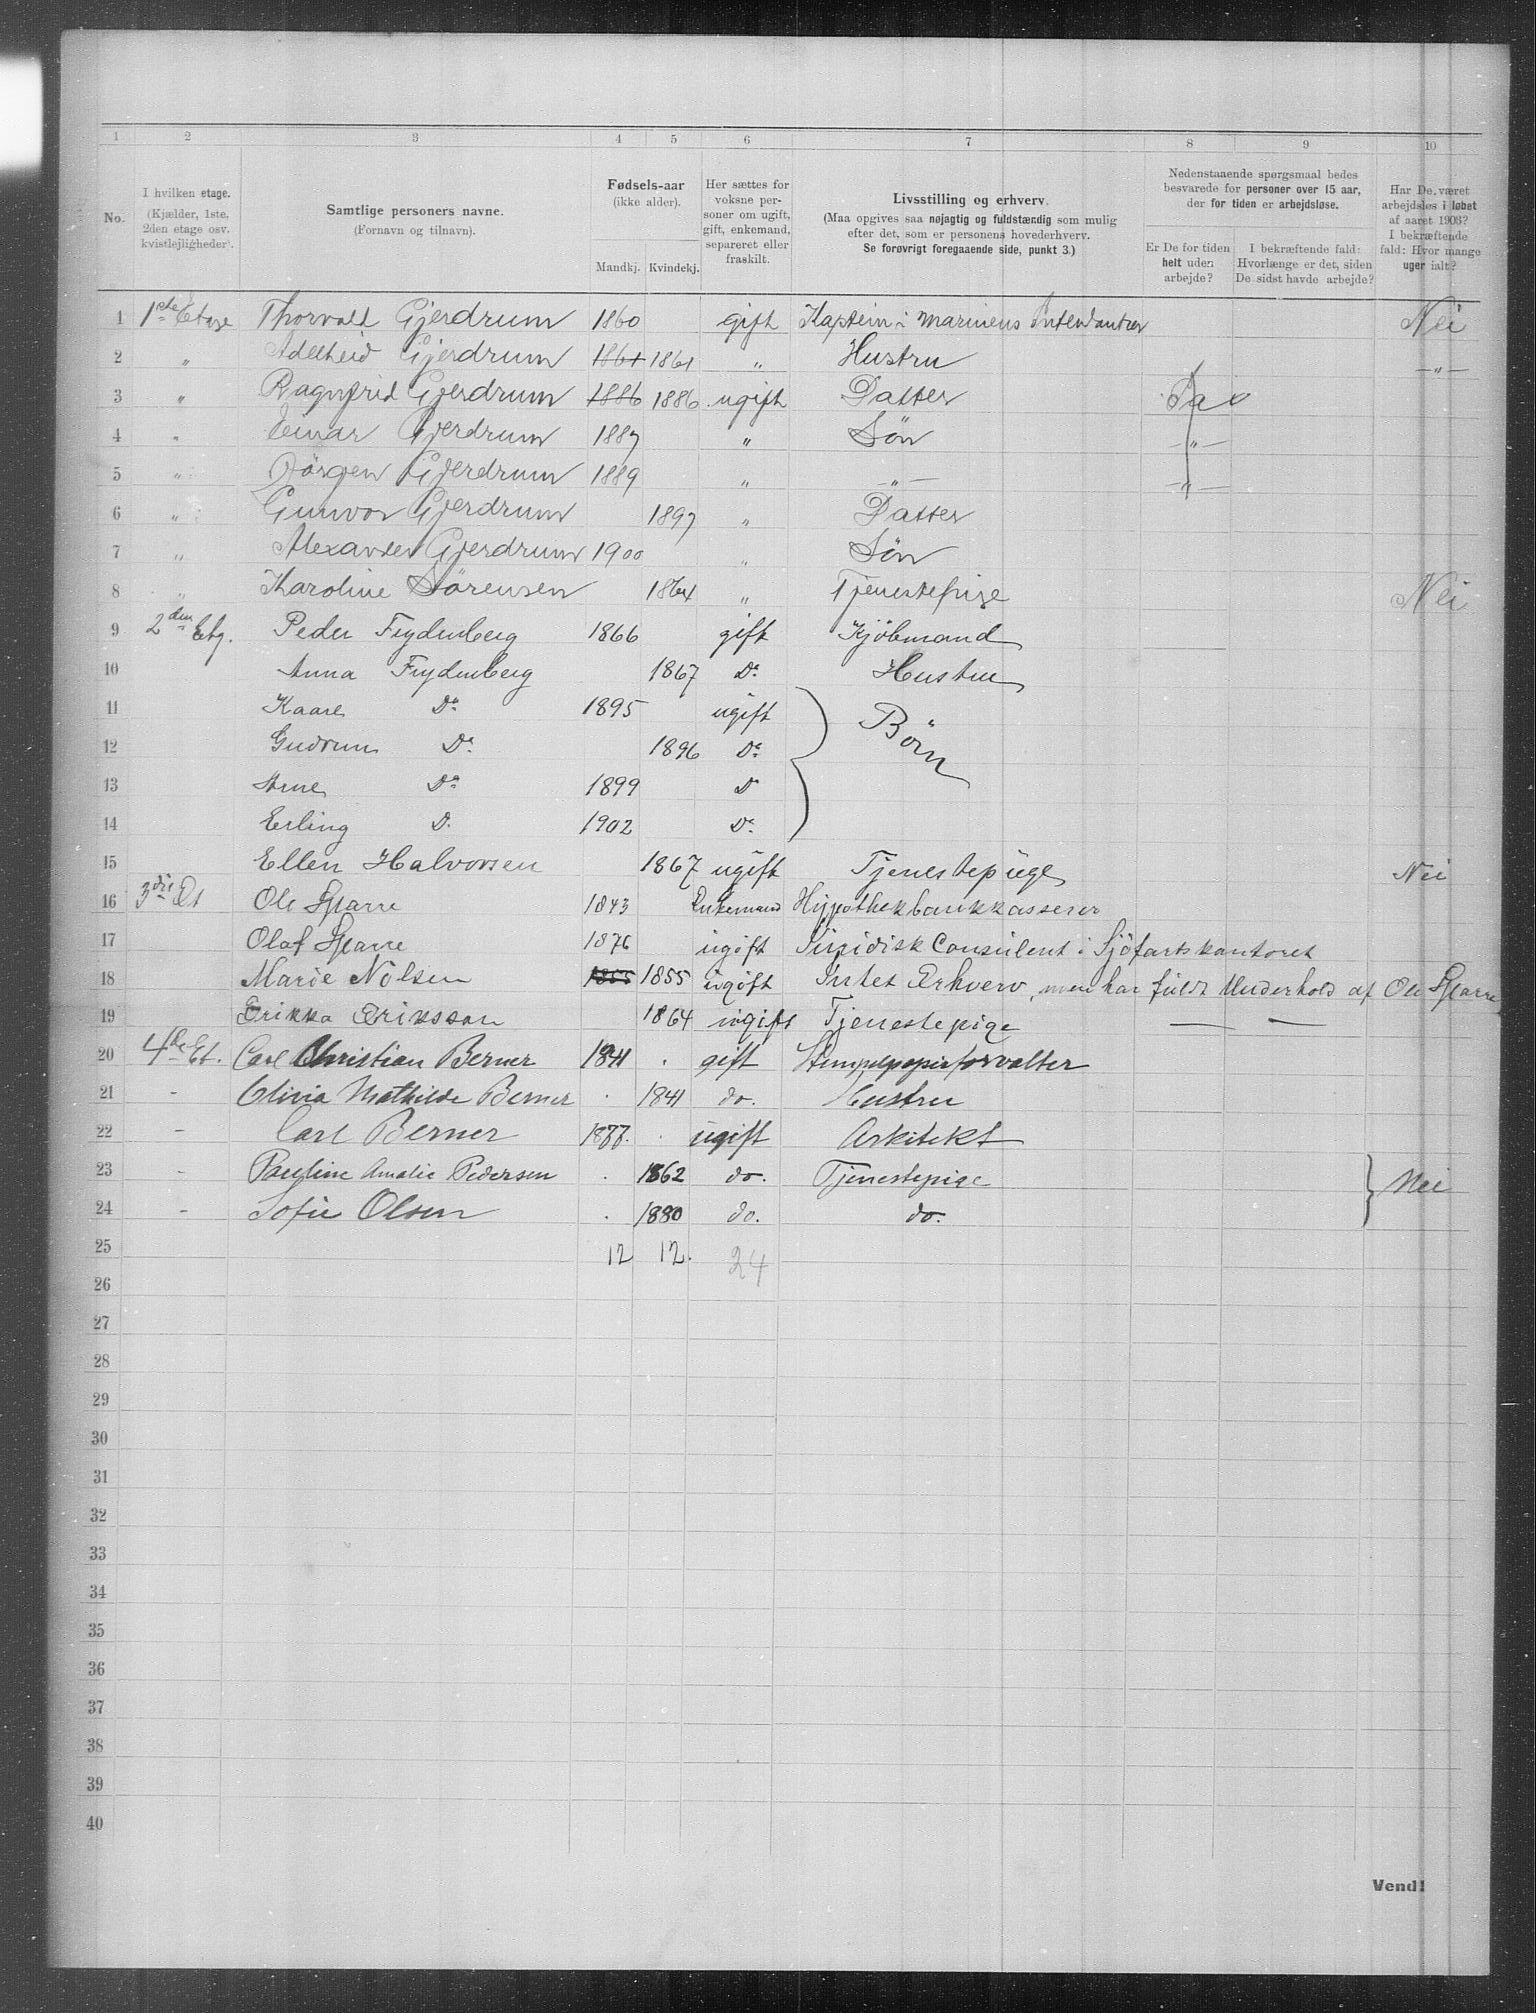 1 2 3 4 5 6 7 8 9 10
No. I hvilken etage. (Kjælder, 1ste, 2den etage osv. kvistlejligheder). Samtlige personers navne. (Fornavn og tilnavn). Fødsels-aar (ikke alder). Mandkj. Kvindekj. Her sættes for voksne personer om ugift, gift, enkemand, separeret eller fraskilt. Livsstilling og erhverv. (Maa opgives saa nøjagtig og fuldstændig som mulig efter det, som er personens hovederhverv. Se forøvrigt foregaaende side, punkt 3.) Nedenstaaende spørgsmaal bedes besvarede for personer over 15 aar, der for tiden er arbejdsløse. Er De for tiden helt uden arbejde? I bekræftende fald: Hvorlænge er det, siden De sidst havde arbejde? Har De været arbejdsløs i løbet af aaret 1903? I bekræftende fald: Hvor mange uger ialt?
1 1ste Etage Thorvald Gjerdrum 1860 gift Kaptein i Marinens Intendantur Nei
2 " Adelheid Gjerdrum 1861 1861 " Hustru "
3 " Ragnfrid Gjerdrum 1886 1886 ugift Datter Ja
4 " Einar Gjerdrum 1887 " Søn "
5 " Jörgen Gjerdrum 1889 " " "
6 " Gunvor Gjerdrum 1897 " Datter
7 " Alexander Gjerdrum 1900 " Søn
8 " Karoline Sörensen 1864 " Tjenestepige Nei
9 2den Etg. Peder Frydenberg 1866 gift Kjöbmand
10 Anna Frydenberg 1867 Do Hustru
11 Kaare Do 1895 ugift Börn
12 Gudrun Do 1896 Do
13 Arne Do 1899 D
14 Erling D. 1902 Do
15 Ellen Halvorsen 1867 ugift Tjenestepige Nei
16 3die Et Ole Sparre 1843 Enkemand Hypothekbankkasserer
17 Olaf Sparre 1876 ugift Juridisk Consulent i Sjöfartskontoret
18 Marie Nilsen 1855 1855 ugift Intet Erhverv, men har fuldt Underhold af Ole Sparre
19 Erikka Eriksson 1864 ugift Tjenestepige — —
20 4de Et. Carl Christian Berner 1841 . gift Stempelpapirforvalter
21 - Olivia Mathilde Berner . 1841 do. Hustru
22 - Carl Berner 1877. . ugift Arkitekt
23 - Pauline Amalie Pedersen . 1862 do. Tjenestepige Nei
24 - Sofie Olsen . 1880 do. do.
25 12 12. 24
26
27
28
29
30
31
32
33
34
35
36
37
38
39
40
Vend!